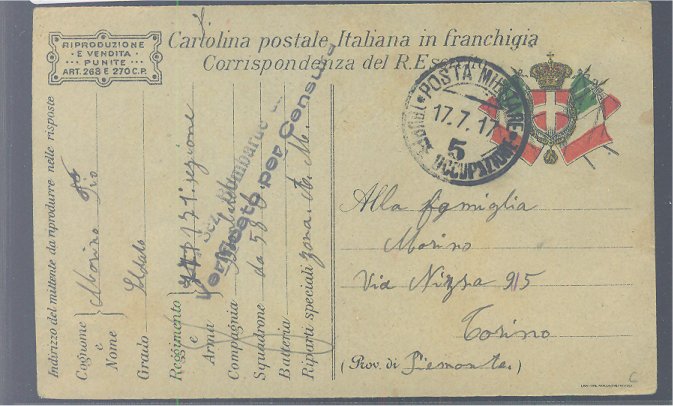 RIPRODUZIONE
E VENDITA
PUNITE
ART. 268 E 270 C.P.
Cartolina postale Italiana in franchigia
Corrispondenza del R. Esercito
POSTA MILITARE
17.7.17
5
OCCUPAZIONE
Alla famiglia
Morino
Via Nizza 915
Torino
(Prov. di Piemonte.)
Indirizzo del mittente da riprodurre nelle risposte
Cognome Morino
e
Nome
Grado Soldato
Reggimento 171
e
Arma
Compagnia
Squadrone da 58
Batteria
Riparti speciali zona
Verificato per Censura